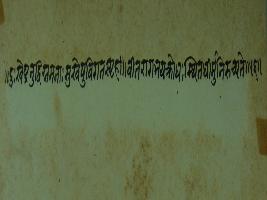 ॥दुःखेष्वनुद्विग्नमनाः सुखेषुविगतस्पृहः॥वीतरागभयक्रोधः स्थितधीर्मुनिरुच्यते॥